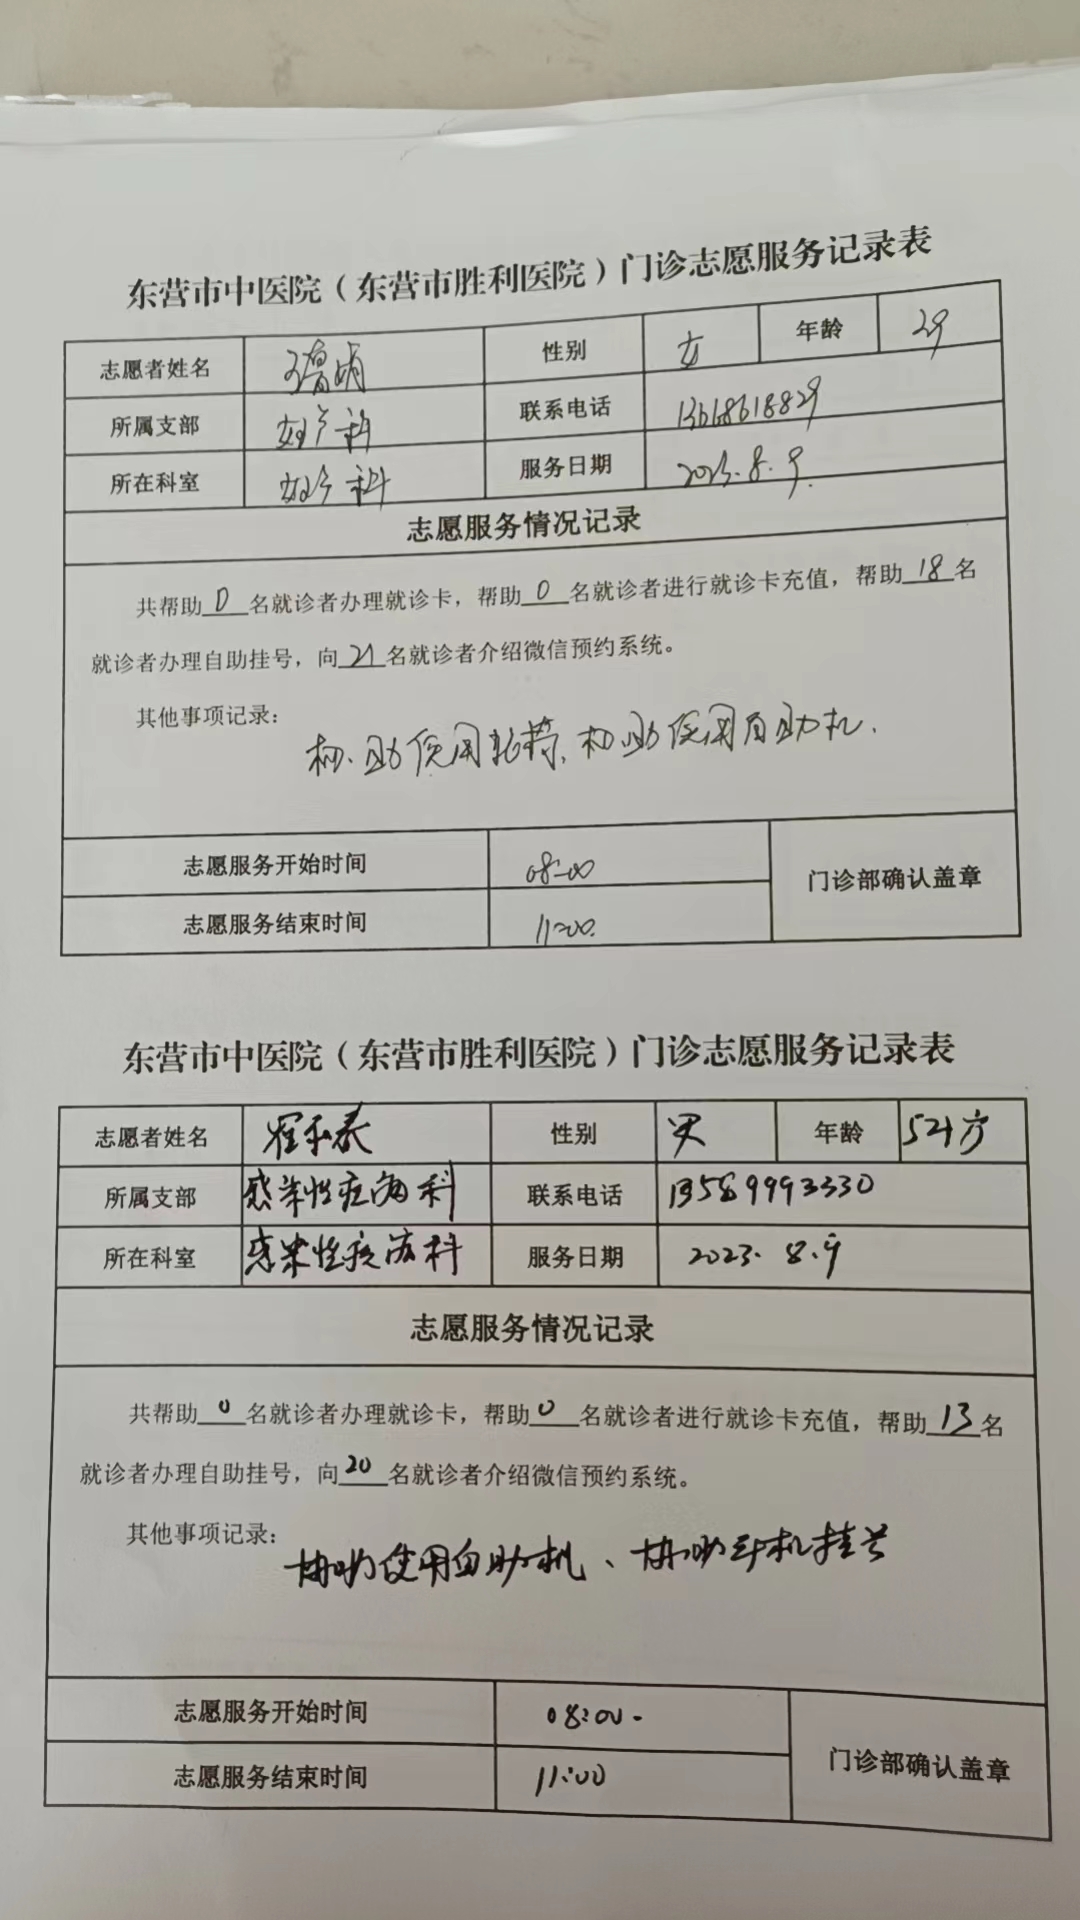 东营市中医院（东营市胜利医院）门诊志愿服务记录表
志愿者姓名 性别 女 年龄 29
所属支部 妇产科 联系电话 13618618829
所在科室 妇产科 服务日期 2023.8.9.
志愿服务情况记录
共帮助0名就诊者办理就诊卡，帮助0名就诊者进行就诊卡充值，帮助18名
就诊者办理自助挂号，向21名就诊者介绍微信预约系统。
其他事项记录：
协助使用轮椅、协助使用自助机.
志愿服务开始时间 08:00
门诊部确认盖章
志愿服务结束时间 11:00.
东营市中医院（东营市胜利医院）门诊志愿服务记录表
志愿者姓名 性别 男 年龄 54岁
所属支部 感染性疾病科 联系电话 13589993330
所在科室 感染性疾病科 服务日期 2023.8.9
志愿服务情况记录
共帮助0名就诊者办理就诊卡，帮助0名就诊者进行就诊卡充值，帮助13名
就诊者办理自助挂号，向20名就诊者介绍微信预约系统。
其他事项记录：
协助使用自助机、协助手机挂号
志愿服务开始时间 08:00.
门诊部确认盖章
志愿服务结束时间 11:00